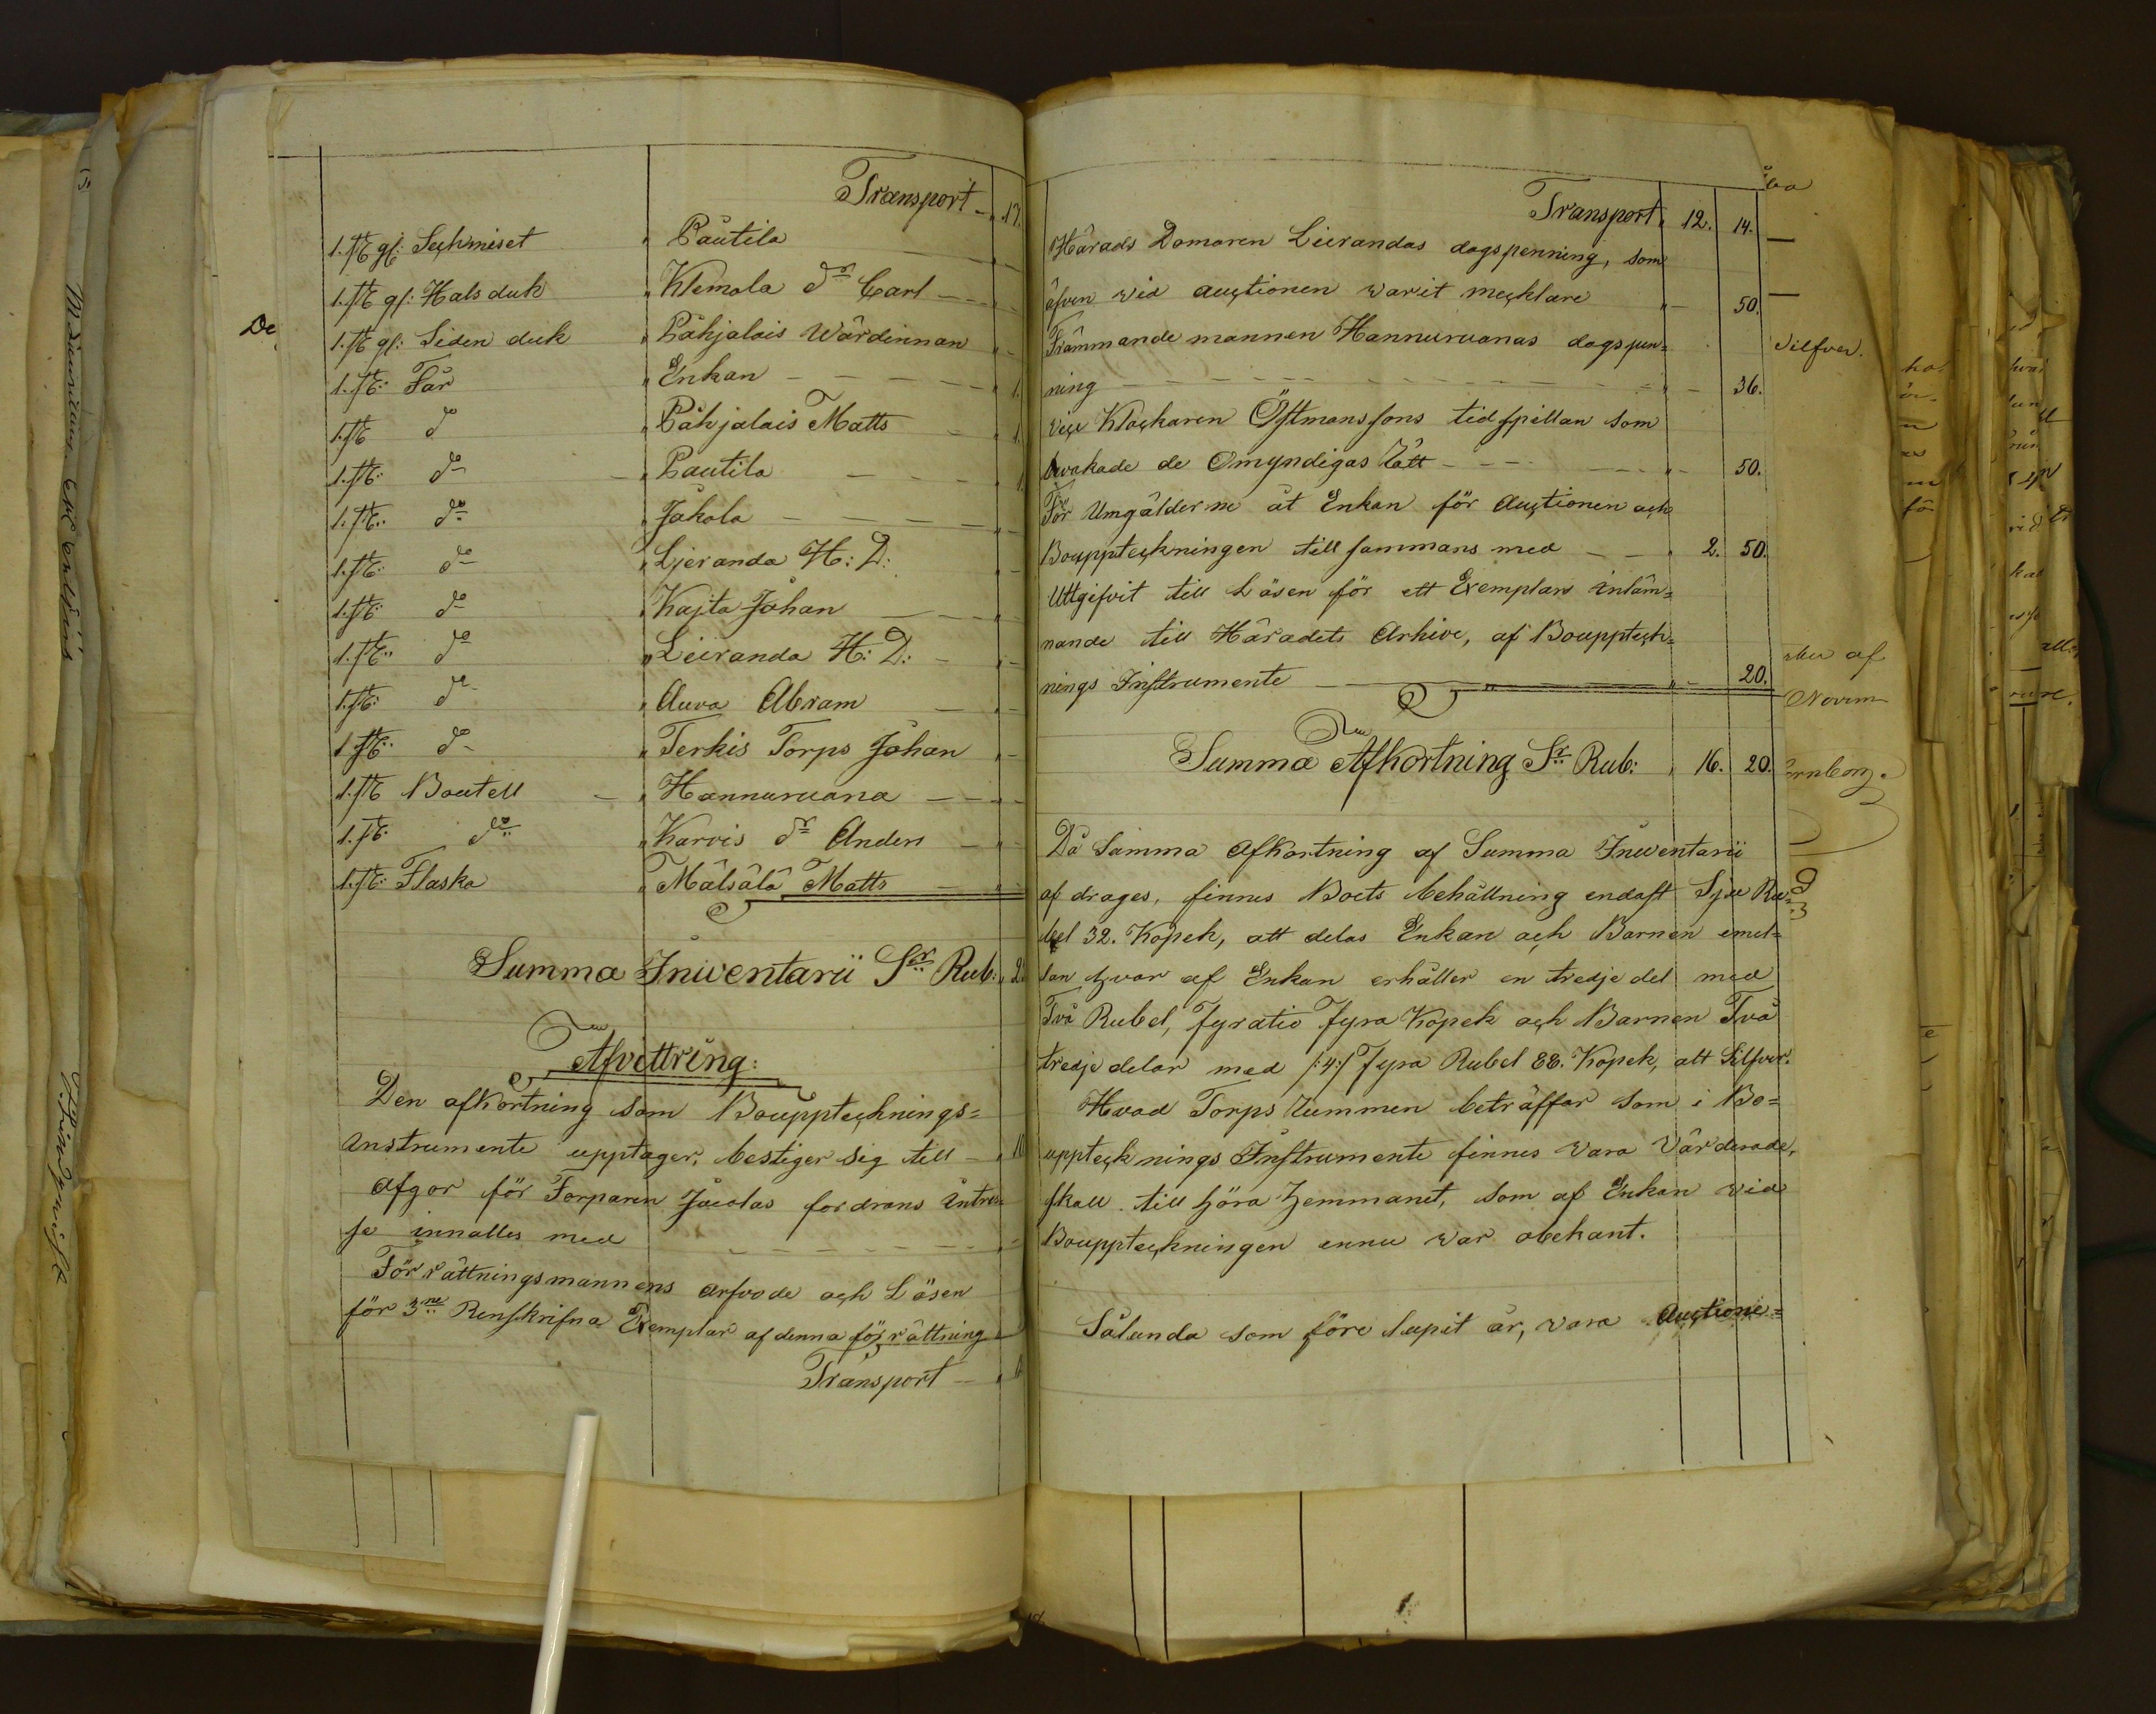 Transport - 17.
1. st. gl: Seçhmiset " Pautila
1. st. gl: Hals duk " Klemola dr Carl
1. st. gl: Siden duk " Påhjalais Wärdinnan
1. st: Får " Enkan 1.
1. st do " Påhjalais Matts 1.
1. st: do " Pautila 1.
1. st: do " Jakola
1. st: do " Ljeranda H: D:
1. st: do " Kajta Johan
1. st: do " Leiranda H: D:
1. st: do " Auva Abram
1. st: do " Terkis Torps Johan
1. st Boutell " Hannuruana
1. st: do " Karvis dr Anders
1. st: Flaska " Mälsälä Matts
Summa Inventarii Sr Rub: 2
Afvittring:
Den afkortning som Bouppteçknings=
instrumente upptager, bestiger sig till 10
Afgår för Torparen Jacolas fordrans intres=
se innalles med
Förrättningsmannens arfvode açh Lösen
för 3ne Renskrifna Exemplar af denna förrättning
Transport
De
Transport 12. 14.
Härads Domaren Lierandas dagspenning, som
äfven vid auçtionen varit meçklare 50.
Främmande mannen Hannuruanas dagspen=
ning 36.
Viçe Kloçkaren Östmanssons tidspillan som
bevakade de Omyndigas Rätt 50.
För Umgälderne åt Enkan för Auçtionen açh
Bouppteçkningen till sammans med 2. 50.
Uttgifvit till Lösen för ett Exemplars inläm=
nande till Häradets Arhive, af Bouppteçk=
nings Instrumente 20.
Summa Afkortning Sr Rub: 16. 20.
Då Samma Afkortning af Summa Inventarii
af drages, finnes Boets behållning endast Sju Ru=
bel 32. Kopek, att delas Enkan açh Barnen emel=
lan hvar af Enkan erhåller en tredje del med
Två Rubel, Fyratio Fyra Kopek açh Barnen Två
tredje delar med /:4:/ Fyra Rubel 88. Kopek, allt Silfver.
Hvad Torps Rummen beträffar som i Bo=
uppteçknings Instrumente finnes vara Värderade,
skall till höra Hemmanet, som af Enkan vid
Bouppteçkningen ennu var obekant.
Sålunda som före lupit är, vara Auçtione=
Silfver.
af
Novem